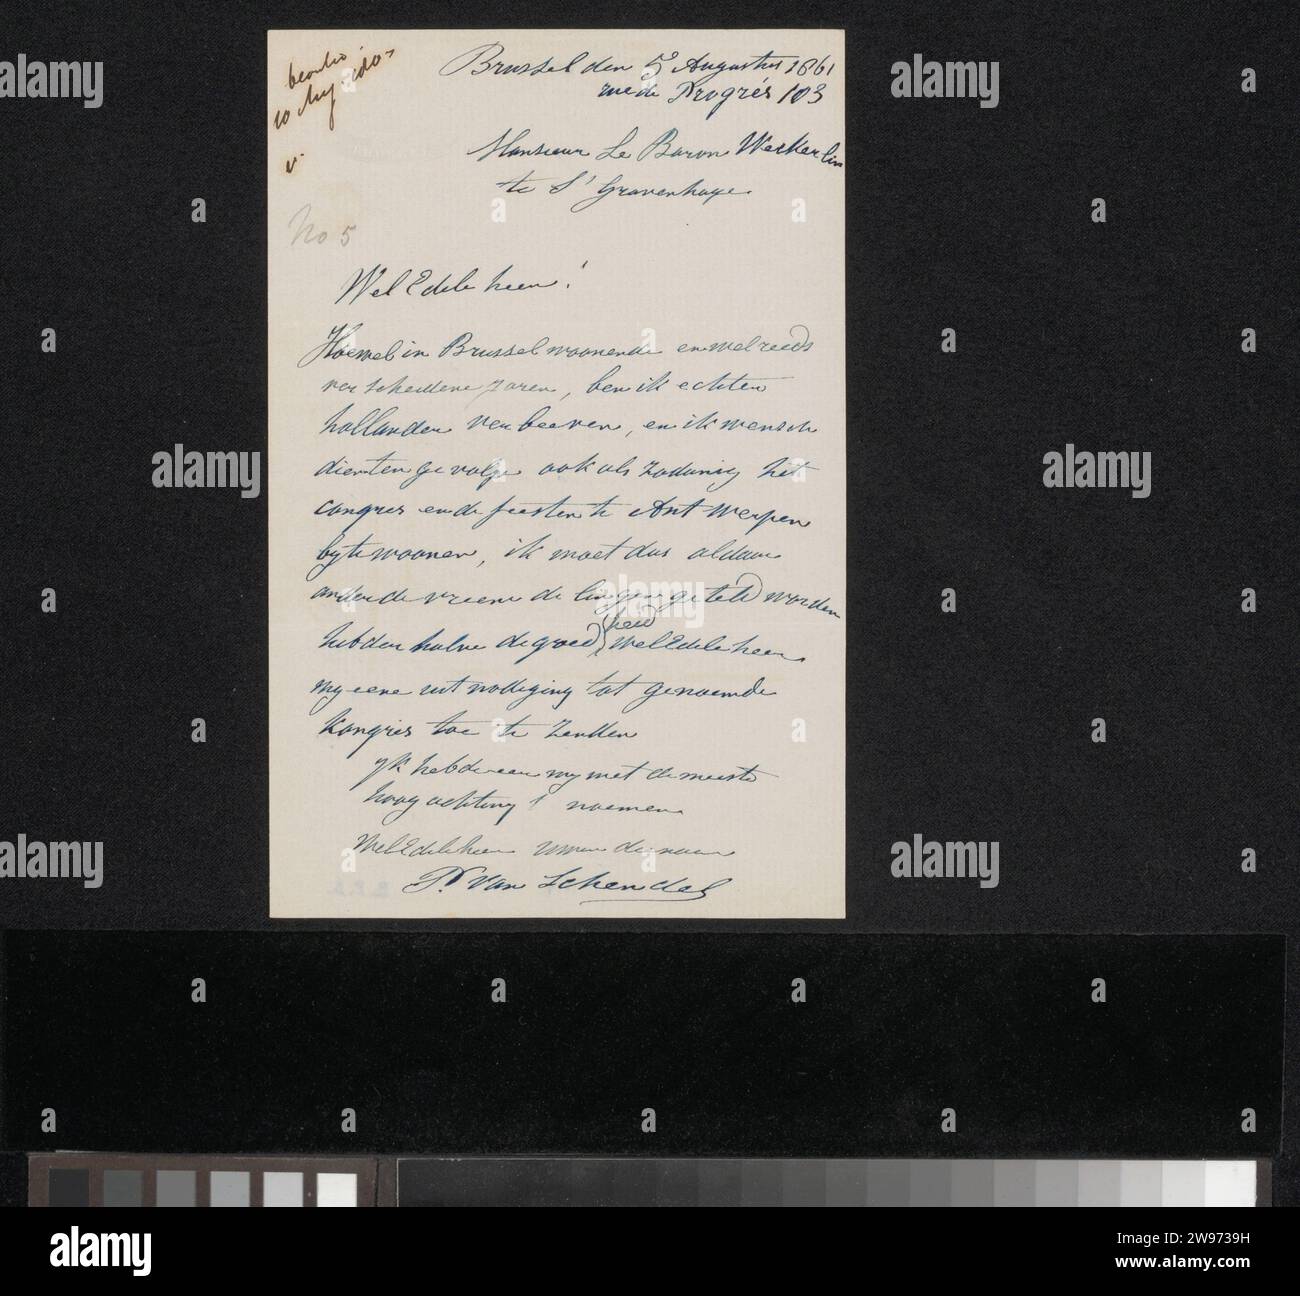 10 Aug.
v.
Brussel den 5 Augustus 1861
rue de Progrés 103
Monsieur Le Baron Weskerlin
te S' Gravenhage
No 5
Wel Edele heer!
Hoewel in Brussel woonende en wel reeds
verscheidene jaren, ben ik echter
hollander verbleeven, en ik wensch
dientengevolge ook als zodanig het
congres en de feesten te Antwerpen
bytewoonen, ik moet dus aldaar
onder de vreemdelingen geteld worden
heb derhalve de goedheid Wel Edele heer
my eene uitnodiging tot genoemde
kongres toe te zenden
yk heb de eer my met de meeste
hoogachting te noemen
Wel Edele heer uwen dienaar
P. van Schendel
alamy
a
Image ID: 2W9739H
www.alamy.com